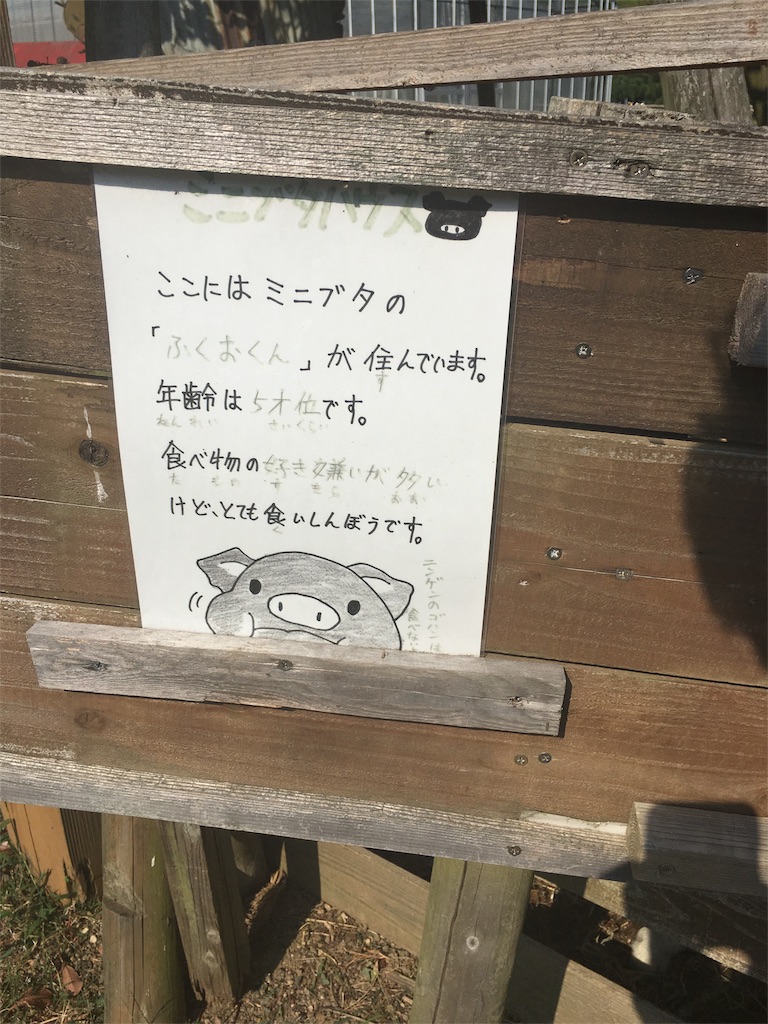 ミニブタハウス
ここにはミニブタの
「ふくおくん」が住んでいます。
す
年齢は5才位です。
ねんれい さいくらい
食べ物の好き嫌いが多い
た もの す きら おお
けど、とても食いしんぼうです。
く
ニンゲンのゴハンは
食べない